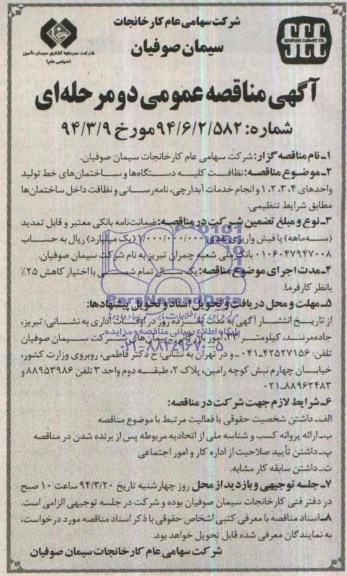 شرکت سهامی عام کارخانجات
سیمان صوفیان
SCC
آگهی مناقصه عمومی دو مرحله‌ای
شماره: ۹۴/۶/۲/۵۸۲ مورخ ۹۴/۳/۹
۱ـ نام مناقصه گزار: شرکت سهامی عام کارخانجات سیمان صوفیان.
۲ـ موضوع مناقصه: نظافت کلیه دستگاهها و ساختمان‌های خط تولید
واحدهای ۱،۲،۳،۴ و انجام خدمات آبدارچی، نامه‌رسانی و نظافت داخل ساختمان‌ها
مطابق شرایط تنظیمی.
۳ـ نوع و مبلغ تضمین شرکت در مناقصه: ضمانت‌نامه بانکی معتبر و قابل تمدید
(سه‌ماهه) یا فیش واریزی نقدی (یک میلیارد) ریال به حساب
۰۱۰۶۰۴۷۹۴۷۰۰۸ بانک ملی شعبه چمران تبریز به نام شرکت سیمان صوفیان.
۴ـ مدت اجرای موضوع مناقصه: یک سال تمام شمسی با اختیار کاهش ۲۵٪
بانظر کارفرما.
۵ـ مهلت و محل دریافت و تحویل اسناد و تحویل پیشنهادها:
از تاریخ انتشار آگهی به مدت ده روز در اوقات اداری به نشانی: تبریز،
جاده‌مرند، کیلومتر ۳۳، امور بازرگانی شرکت سیمان صوفیان
تلفن: ۴۲۵۲۷۱۵۶-۰۴۱ و در تهران به نشانی: خ دکتر فاطمی، روبروی وزارت کشور،
خیابان چهارم نبش کوچه رامین، پلاک ۲، طبقه‌سوم واحد ۳ تلفن ۸۸۹۵۳۹۸۶ و
۰۲۱-۸۸۹۶۲۴۸۳
۶ـ شرایط لازم جهت شرکت در مناقصه:
الف‌ـ داشتن شخصیت حقوقی با فعالیت مرتبط با موضوع مناقصه
ب‌ـ ارائه پروانه کسب و شناسه ملی از اتحادیه مربوطه پس از برنده شدن در مناقصه
پ‌ـ داشتن تأیید صلاحیت از اداره کار و امور اجتماعی
ت‌ـ داشتن سابقه کار مشابه.
۷ـ جلسه توجیهی و بازدید از محل روز چهارشنبه تاریخ ۹۴/۳/۲۰ ساعت ۱۰ صبح
در دفتر فنی کارخانجات سیمان صوفیان بوده و شرکت در جلسه توجیهی الزامی است.
۸ـ اسناد مناقصه با معرفی کتبی اشخاص حقوقی با ذکر اسناد مناقصه مورد درخواست،
به نمایندگان معرفی شده قابل تحویل خواهد بود.
شرکت سهامی عام کارخانجات سیمان صوفیان